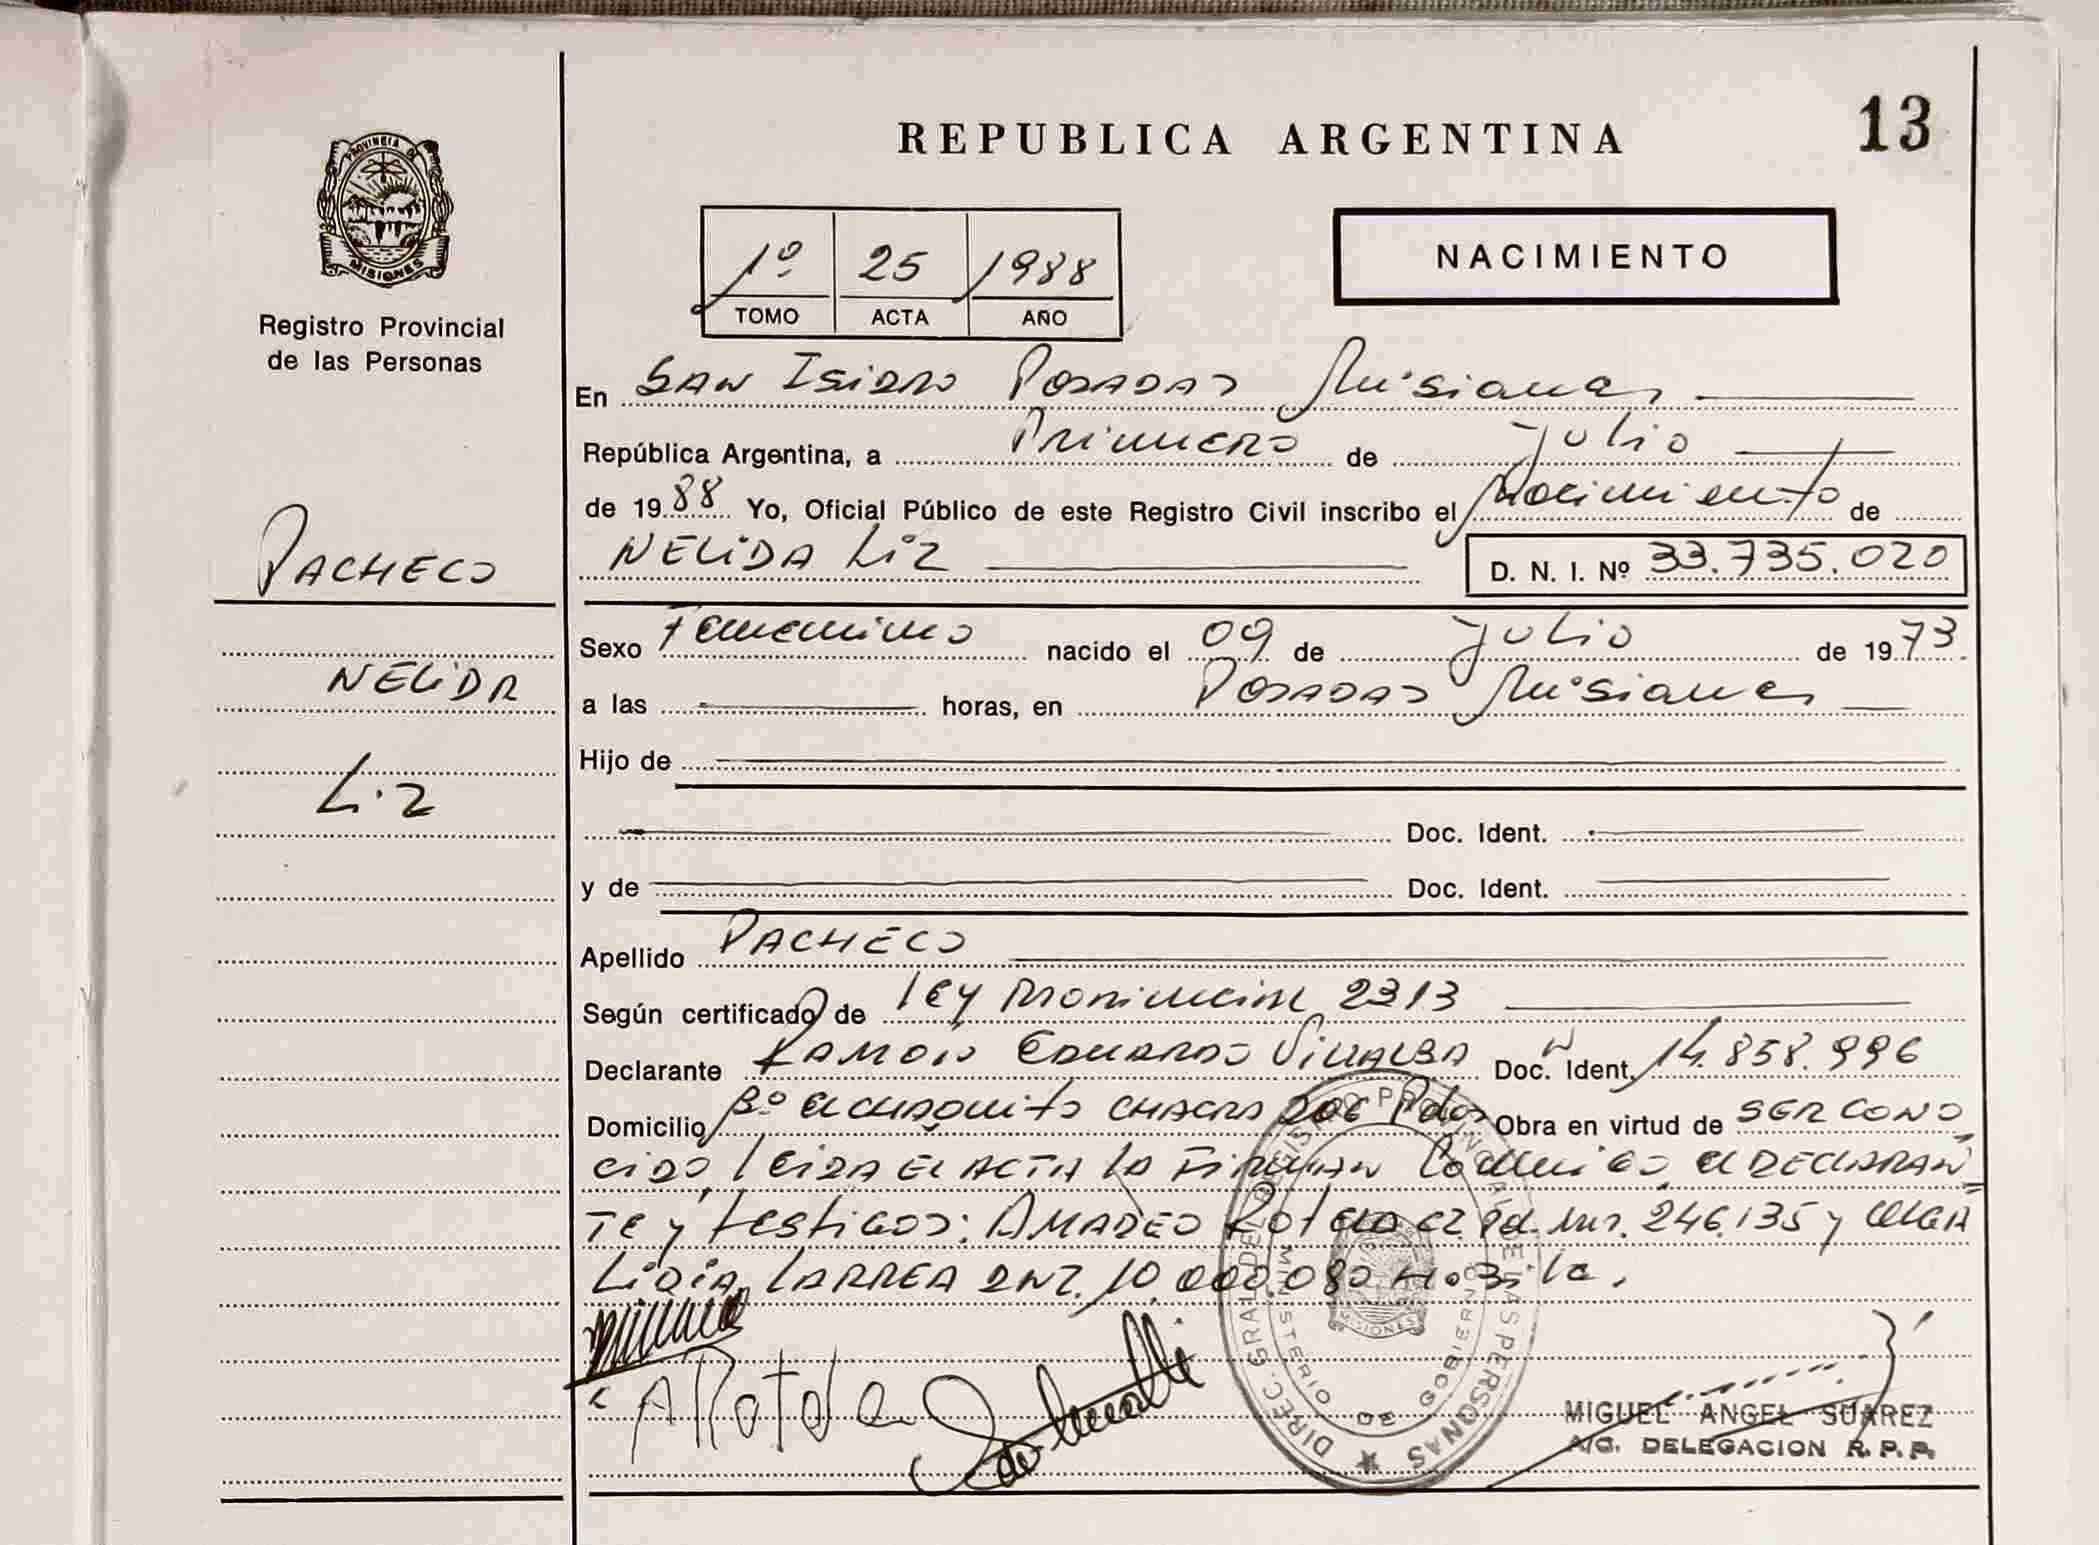 13
REPUBLICA ARGENTINA
PROVINCIA DE
MISIONES
Registro Provincial
de las Personas
1º 25 1988
TOMO ACTA AÑO
NACIMIENTO
En SAN ISIDRO POSADAS Misiones
República Argentina, a Primero de Julio
de 1988 Yo, Oficial Público de este Registro Civil inscribo el Nacimiento de
NELIDA Liz D. N. I. Nº 33.735.020
PACHECO
NELIDA
Liz
Sexo Femenino nacido el 09 de Julio de 1973.
a las horas, en POSADAS Misiones
Hijo de
Doc. Ident.
y de Doc. Ident.
Apellido PACHECO
Según certificado de ley Provincial 2313
Declarante RAMON EDUARDO VILLALBA Doc. Ident. 14.858.996
Domicilio Bº el chaquito CHACRA 206 Pdas Obra en virtud de SER CONO
CIDO, leida EL ACTA la Firman Conmigo, el DECLARAN
TE y testigos: AMADEO Rotela 246.135 y
LIDIA LARREA DNI. 10.000.080
DIREC. GRAL DEL REGISTRO PROVINCIAL DE LAS PERSONAS
MINISTERIO DE GOBIERNO
MISIONES
A Rotela
MIGUEL ANGEL SUAREZ
A/C. DELEGACION R. P. P.